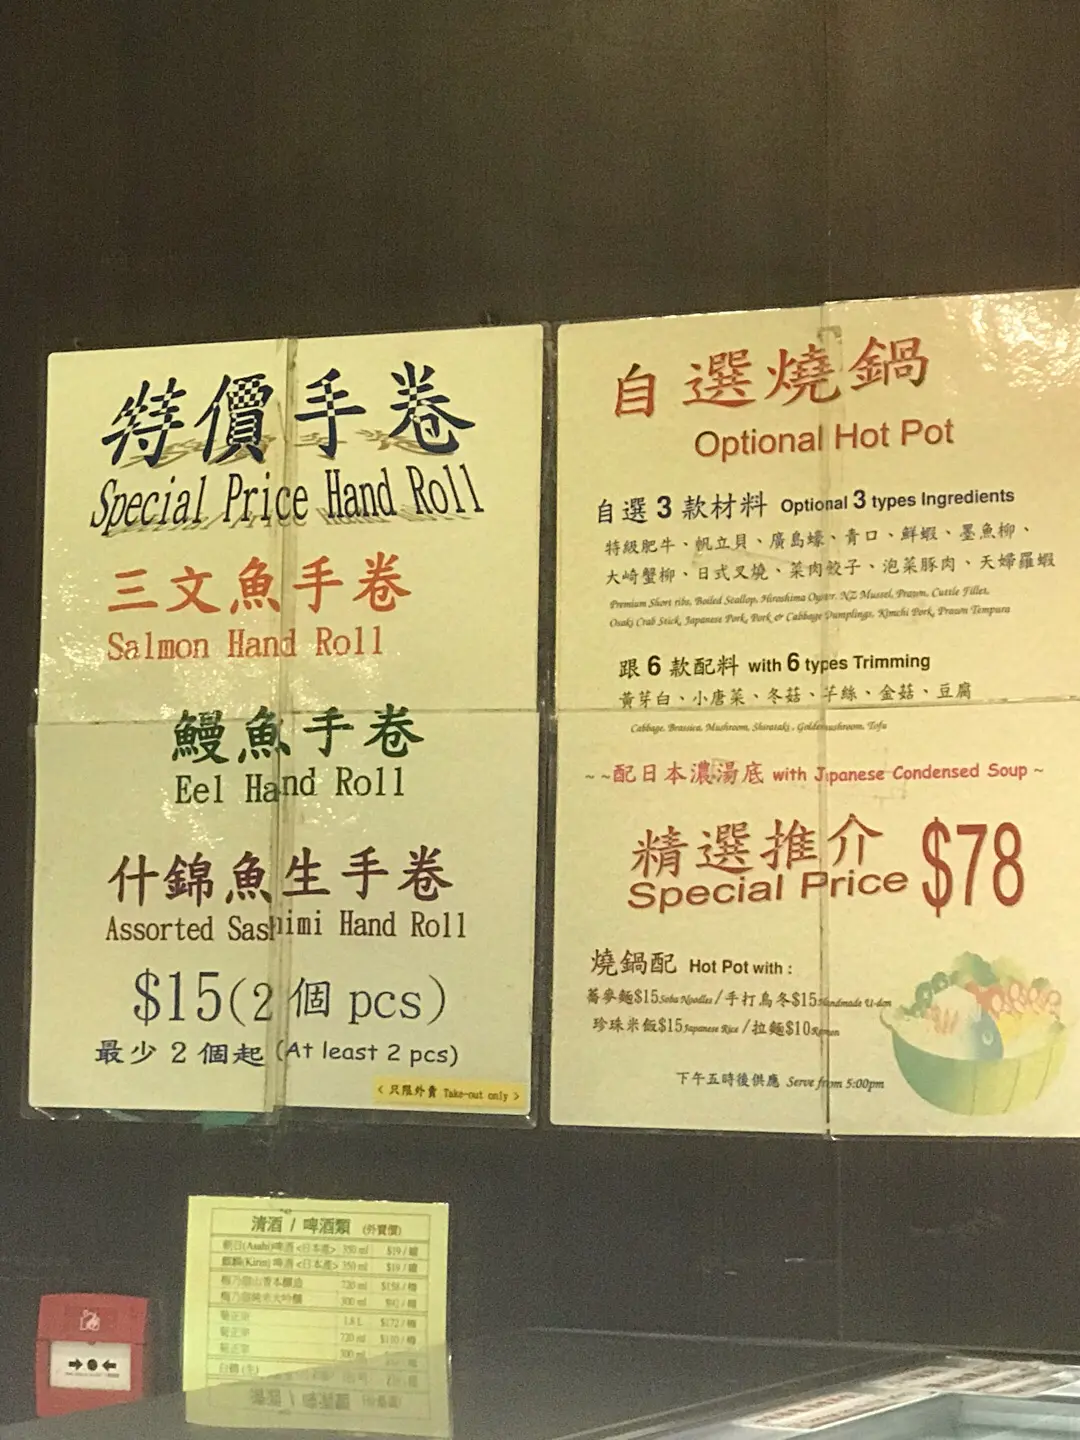 特價手卷
Special Price Hand Roll
三文魚手卷
Salmon Hand Roll
鰻魚手卷
Eel Hand Roll
什錦魚生手卷
Assorted Sashimi Hand Roll
$15(2 個 pcs)
最少 2 個起 (At least 2 pcs)
< 只限外賣 Take-out only >
自選燒鍋
Optional Hot Pot
自選 3 款材料 Optional 3 types Ingredients
特級肥牛、帆立貝、廣島蠔、青口、鮮蝦、墨魚柳、
大崎蟹柳、日式叉燒、菜肉餃子、泡菜豚肉、天婦羅蝦
Premium Short ribs, Boiled Scallop, Hiroshima Oyster, NZ Mussel, Prawn, Cuttle Fillet,
Osaki Crab Stick, Japanese Pork, Pork & Cabbage Dumplings, Kimchi Pork, Prawn Tempura
跟 6 款配料 with 6 types Trimming
黃芽白、小唐菜、冬菇、芋絲、金菇、豆腐
Cabbage, Brassica, Mushroom, Shirataki, Goldenmushroom, Tofu
~ ~配日本濃湯底 with Japanese Condensed Soup ~
精選推介 $78
Special Price
燒鍋配 Hot Pot with :
蕎麥麵$15 Soba Noodles / 手打烏冬$15 Handmade U-don
珍珠米飯$15 Japanese Rice / 拉麵$10 Ramen
下午五時後供應 Serve from 5:00pm
清酒 / 啤酒類 (外賣價)
朝日(Asahi)啤酒 <日本產> 350 ml $19 / 罐
麒麟(Kirin) 啤酒 <日本產> 350 ml $19 / 罐
720 ml $158 / 樽
300 ml
菊正宗 1.8 L $172 / 樽
菊正宗 720 ml
菊正宗 300 ml
白鶴 (生)